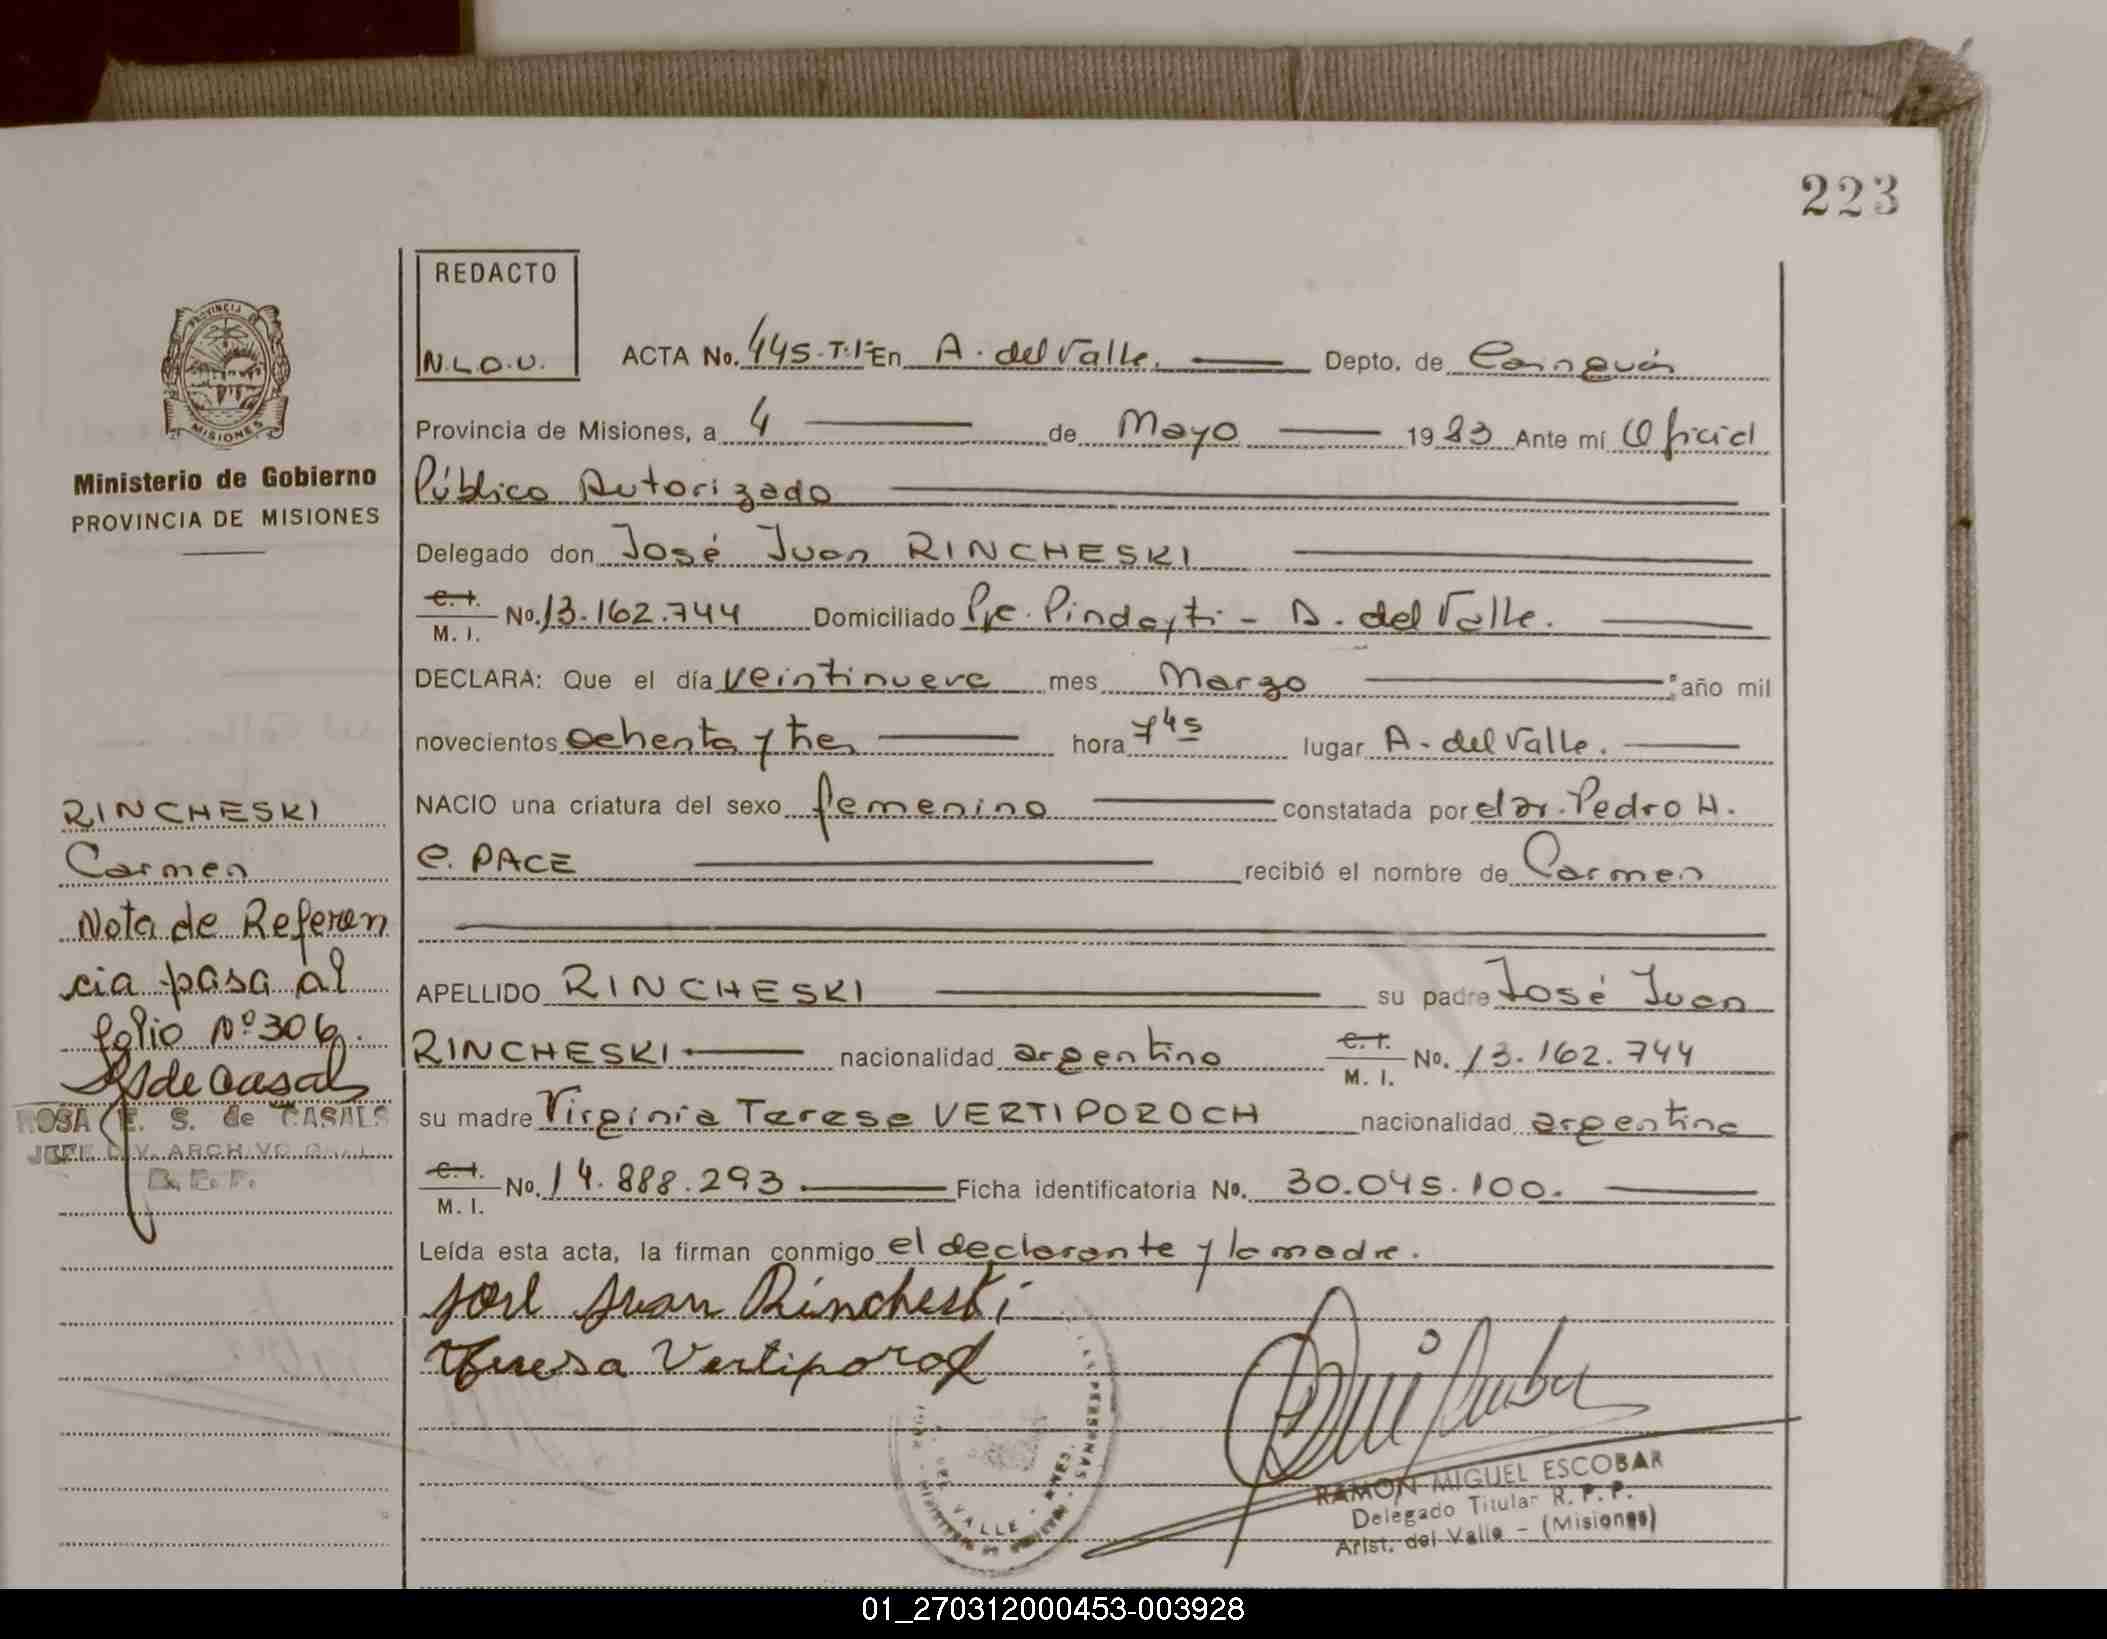 223
REDACTO
N.L.O.U.
ACTA No. 445-T.1º En A. del Valle. Depto. de Cainguás
Provincia de Misiones, a 4 de Mayo 1983 Ante mí Oficial
Público Autorizado
Delegado don José Juan RINCHESKI
C. I. M. I. No. 13.162.744 Domiciliado Pje. Pindayti - A. del Valle.
DECLARA: Que el día veintinueve mes Marzo año mil
novecientos ochenta y tres hora 7 45 lugar A. del Valle.
NACIO una criatura del sexo femenino constatada por el dr. Pedro H.
C. PACE recibió el nombre de Carmen
APELLIDO RINCHESKI su padre José Juan
RINCHESKI nacionalidad argentino C. I. M. I. No. 13.162.744
su madre Virginia Teresa VERTIPOROCH nacionalidad argentina
C. I. M. I. No. 14.888.293 Ficha identificatoria No. 30.045.100.
Leída esta acta, la firman conmigo el declarante y la madre.
José Juan Rincheski
Teresa Vertiporoch
RAMON MIGUEL ESCOBAR
Delegado Titular R. P. P.
Arist. del Valle - (Misiones)
PERSONAS
VALLE
PROVINCIA DE
MISIONES
Ministerio de Gobierno
PROVINCIA DE MISIONES
RINCHESKI
Carmen
Nota de Referen
cia pasa al
folio Nº 306.
RSdeCasals
ROSA E. S. de CASALS
JEFE DIV. ARCHIVO GRAL.
R. P. P.
01_270312000453-003928